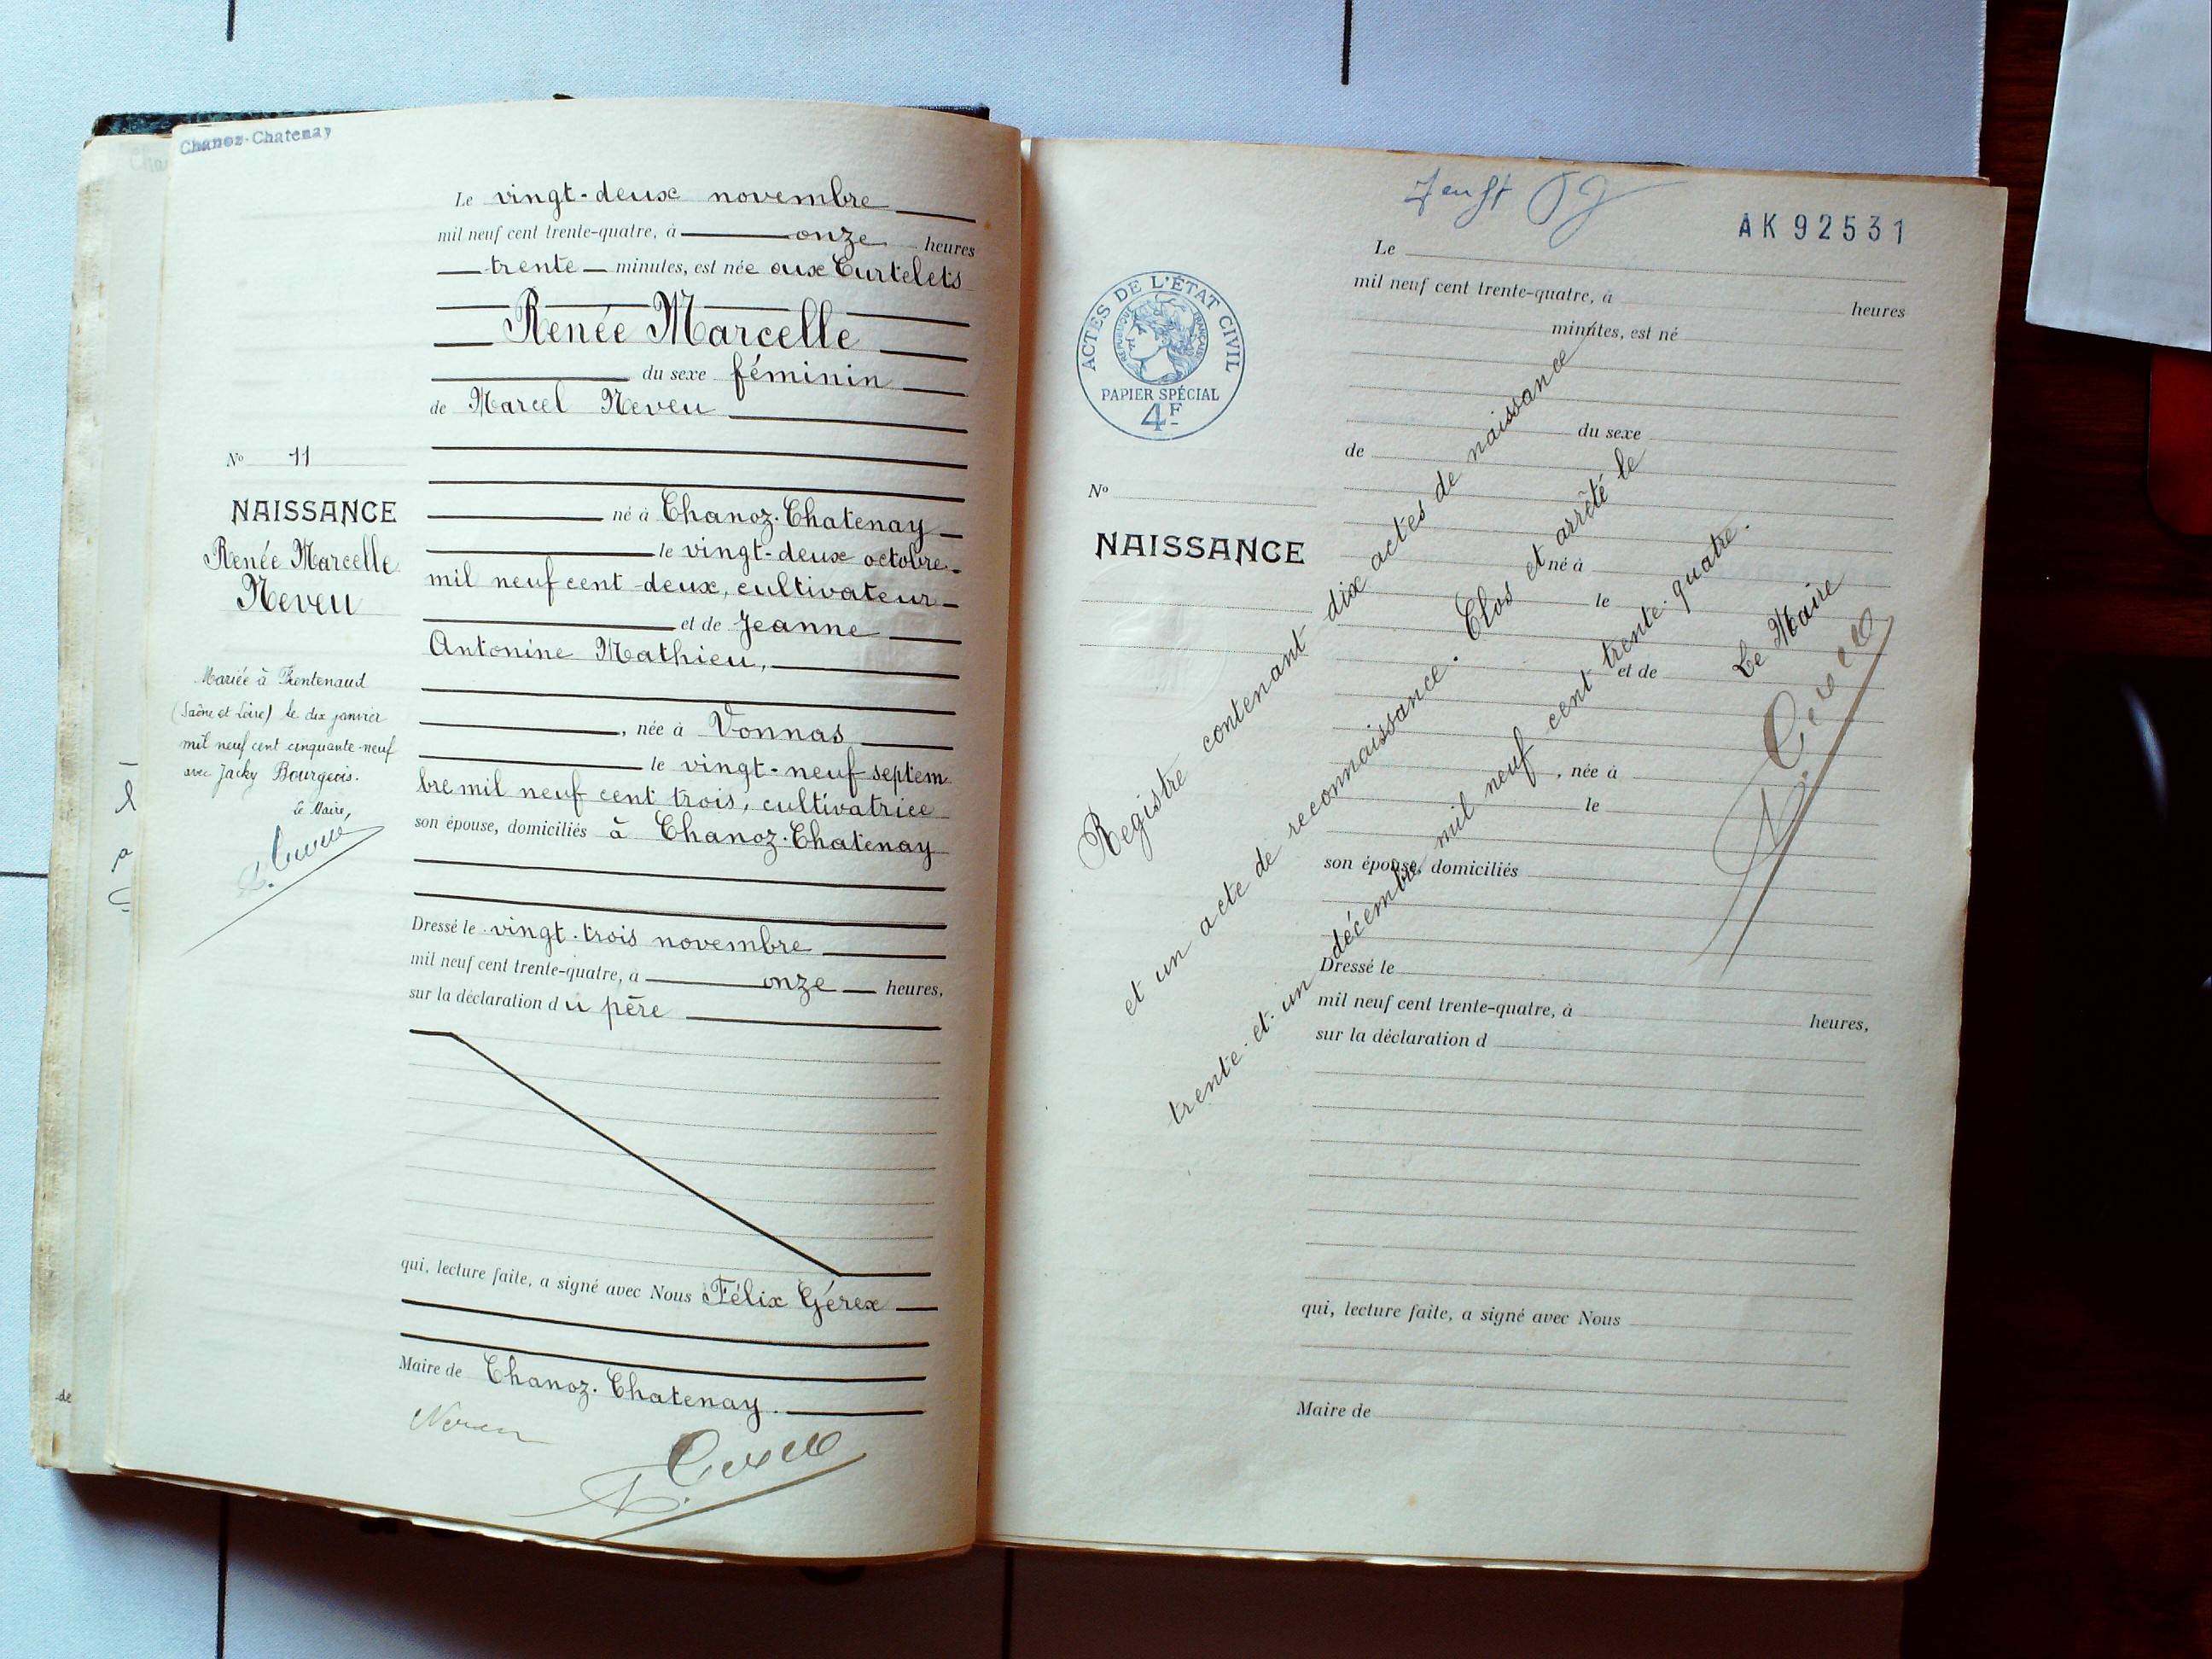 Chanoz-Chatenay
Le vingt-deux novembre
mil neuf cent trente-quatre, à onze heures
trente minutes, est née aux Curtelets
Renée Marcelle
du sexe féminin
de Marcel Neveu
né à Chanoz-Chatenay
le vingt-deux octobre
mil neuf cent deux, cultivateur
et de Jeanne
Antonine Mathieu,
, née à Vonnas
le vingt-neuf septem
bre mil neuf cent trois, cultivatrice
son épouse, domiciliés à Chanoz-Chatenay
Dressé le vingt-trois novembre
mil neuf cent trente-quatre, à onze heures,
sur la déclaration du père
qui, lecture faite, a signé avec Nous Félix Gérex
Maire de Chanoz-Chatenay.
Neveu
Nº 11
NAISSANCE
Renée Marcelle
Neveu
Mariée à Frontenaud
(Saône et Loire) le dix janvier
mil neuf cent cinquante-neuf
avec Jacky Bourgeois.
Le Maire,
de
AK 92531
ACTES DE L'ÉTAT CIVIL
RÉPUBLIQUE FRANÇAISE
PAPIER SPÉCIAL
4F
Nº
NAISSANCE
Le
mil neuf cent trente-quatre, à heures
minutes, est né
du sexe
de
né à
le
et de
, née à
le
son épouse, domiciliés
Dressé le
mil neuf cent trente-quatre, à heures,
sur la déclaration d
qui, lecture faite, a signé avec Nous
Maire de
Registre contenant dix actes de naissance
et un acte de reconnaissance. Clos et arrêté le
trente-et-un décembre mil neuf cent trente-quatre.
Le Maire